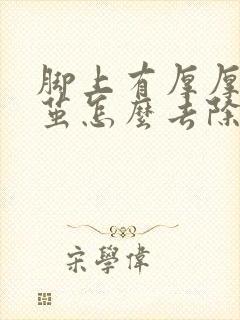 脚上有厚厚
茧怎麼去除
宋學偉